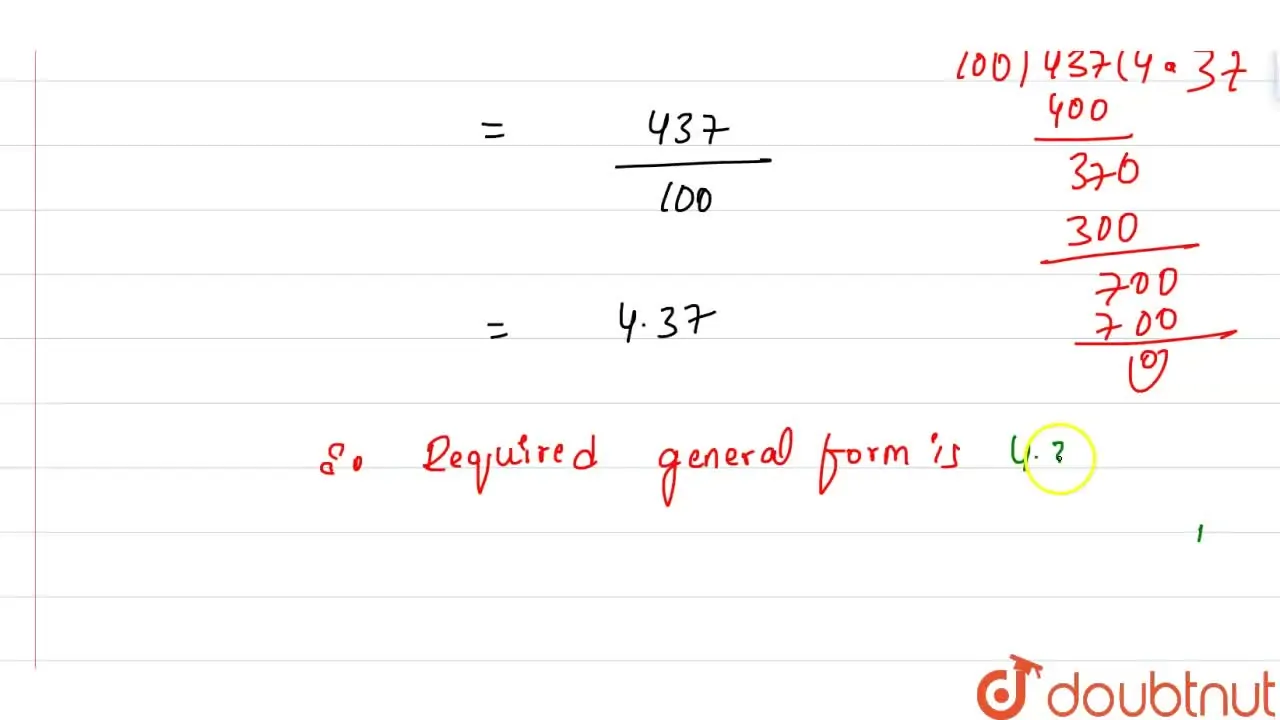 100) 437(4.37
400
370
300
700
700
0
= 437
100
= 4.37
So Required general form is 4.3
doubtnut